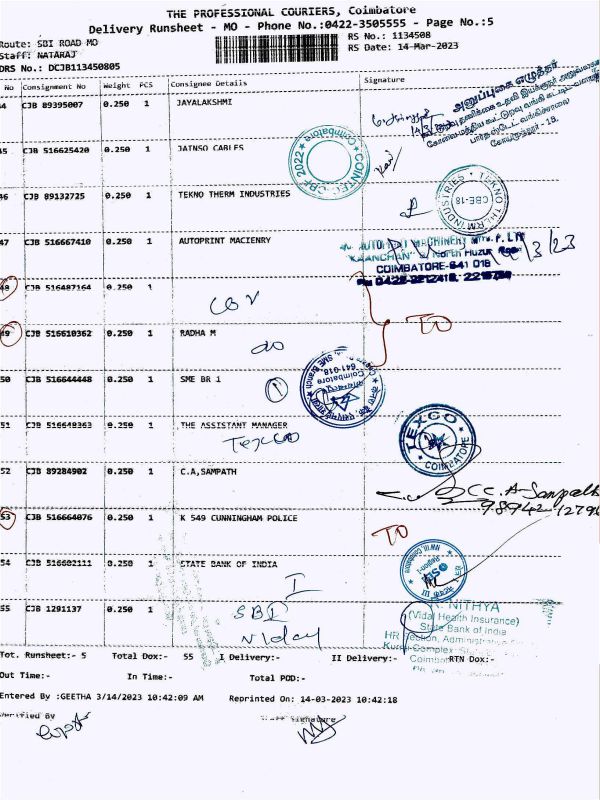 THE PROFESSIONAL COURIERS, Coimbatore
Delivery Runsheet - MO - Phone No.:0422-3505555 - Page No.:5
Route: SBI ROAD MO
RS No.: 1134508
Staff: NATARAJ
RS Date: 14-Mar-2023
DRS No.: DCJB113450805
No Consignment No Weight PCS Consignee Details Signature
44 CJB 89395007 0.250 1 JAYALAKSHMI
14/3
அனுப்புகை எழுத்தர்
45 CJB 516625420 0.250 1 JAINSO CABLES
2022 Coimbatore COINTEC
46 CJB 89132725 0.250 1 TEKNO THERM INDUSTRIES
TEKNO THERM INDUSTRIES
CBE-18
47 CJB 516667410 0.250 1 AUTOPRINT MACIENRY
AUTOPRINT MACHINERY MFRS. P. LTD
"KAANCHAN" North Huzur Road
COIMBATORE-641 018
14/3/23
48 CJB 516487164 0.250 1
CBV
TO
49 CJB 516610362 0.250 1 RADHA M
do
50 CJB 516644448 0.250 1 SME BR 1
1
SME Branch Coimbatore 641-018
51 CJB 516648363 0.250 1 THE ASSISTANT MANAGER
Texco
TEXCO
COIMBATORE
52 CJB 89284902 0.250 1 C.A,SAMPATH
C. A. Sampath
53 CJB 516664076 0.250 1 K 549 CUNNINGHAM POLICE
TO
54 CJB 516602111 0.250 1 STATE BANK OF INDIA
I
55 CJB 1291137 0.250 1
SBI
Viday
K. NITHYA
(Vidal Health Insurance)
State Bank of India
HR Section, Administrative
Tot. Runsheet:- 5 Total Dox:- 55 I Delivery:- II Delivery:- RTN Dox:-
Out Time:- In Time:- Total POD:-
Entered By :GEETHA 3/14/2023 10:42:09 AM Reprinted On: 14-03-2023 10:42:18
Verified By Staff Signature